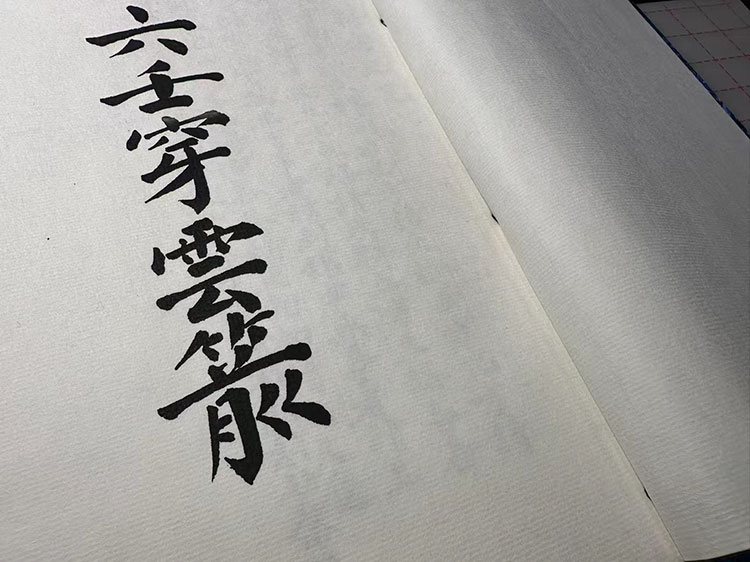 六壬穿雲箭